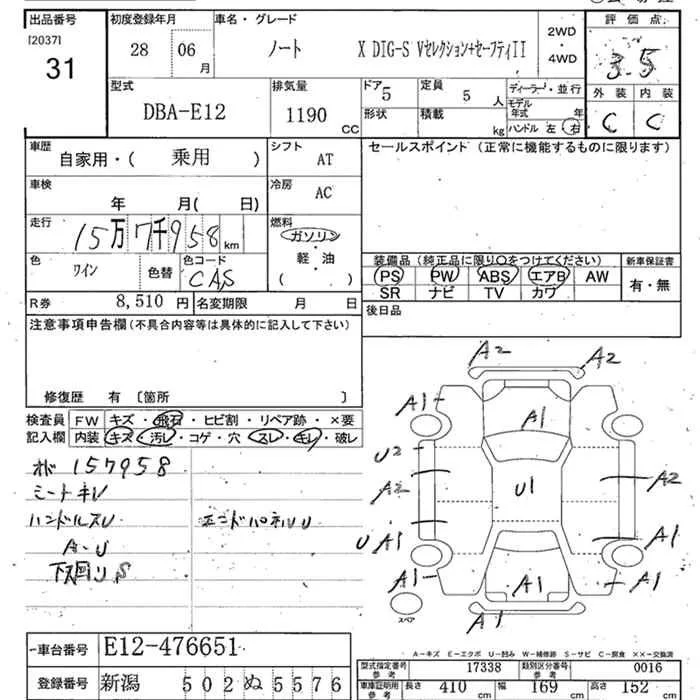 出品番号 初度登録年月 車名・グレード 評価点
[2037] 31 28 06 月 ノート X DIG-S Vセレクション+セーフティII 2WD・4WD 3.5
型式 排気量 ドア 5 定員 5 人 ディーラー・並行 外装 内装
DBA-E12 1190 CC 形状 積載 kg モデル年式 年 ハンドル 左 右 C C
車歴 自家用・( 乗用 ) シフト AT セールスポイント (正常に機能するものに限ります)
車検 年 月( 日) 冷房 AC
走行 15万7千958 km 燃料 ガソリン・軽油 ( )
色 ワイン 色替 色コード CAS
装備品 (純正品に限り○をつけてください) 新車保証書
PS PW ABS エアB AW 有・無
SR ナビ TV カワ
R券 8,510 円 名変期限 月 日 後日品
注意事項申告欄 (不具合内容等は具体的に記入して下さい)
修復歴 有 [箇所 ]
検査員記入欄 FW キズ・飛石・ヒビ割・リペア跡・×要
内装 キズ・汚レ・コゲ・穴・スレ・キレ・破レ
オド 157958
シートキレ
ハンドルスレ エンドパネルU
A・U
下回りS
A2 A2
A1 A1
U2 A2 U1 A2
U A1 A1
A1 A1 A1
A1
スペア
A－キズ E－エクボ U－凹み W－補修跡 S－サビ C－腐食 ××－交換済
車台番号 E12-476651
登録番号 新潟 502 ぬ 5576
型式指定番号 参考 17338 類別区分番号 参考 0016
車庫証明用 参考 長さ 410 cm 幅 169 cm 高さ 152 cm